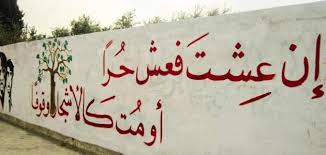 إن عشت فعش حُراً
أو مت كالأشجار وقوفا